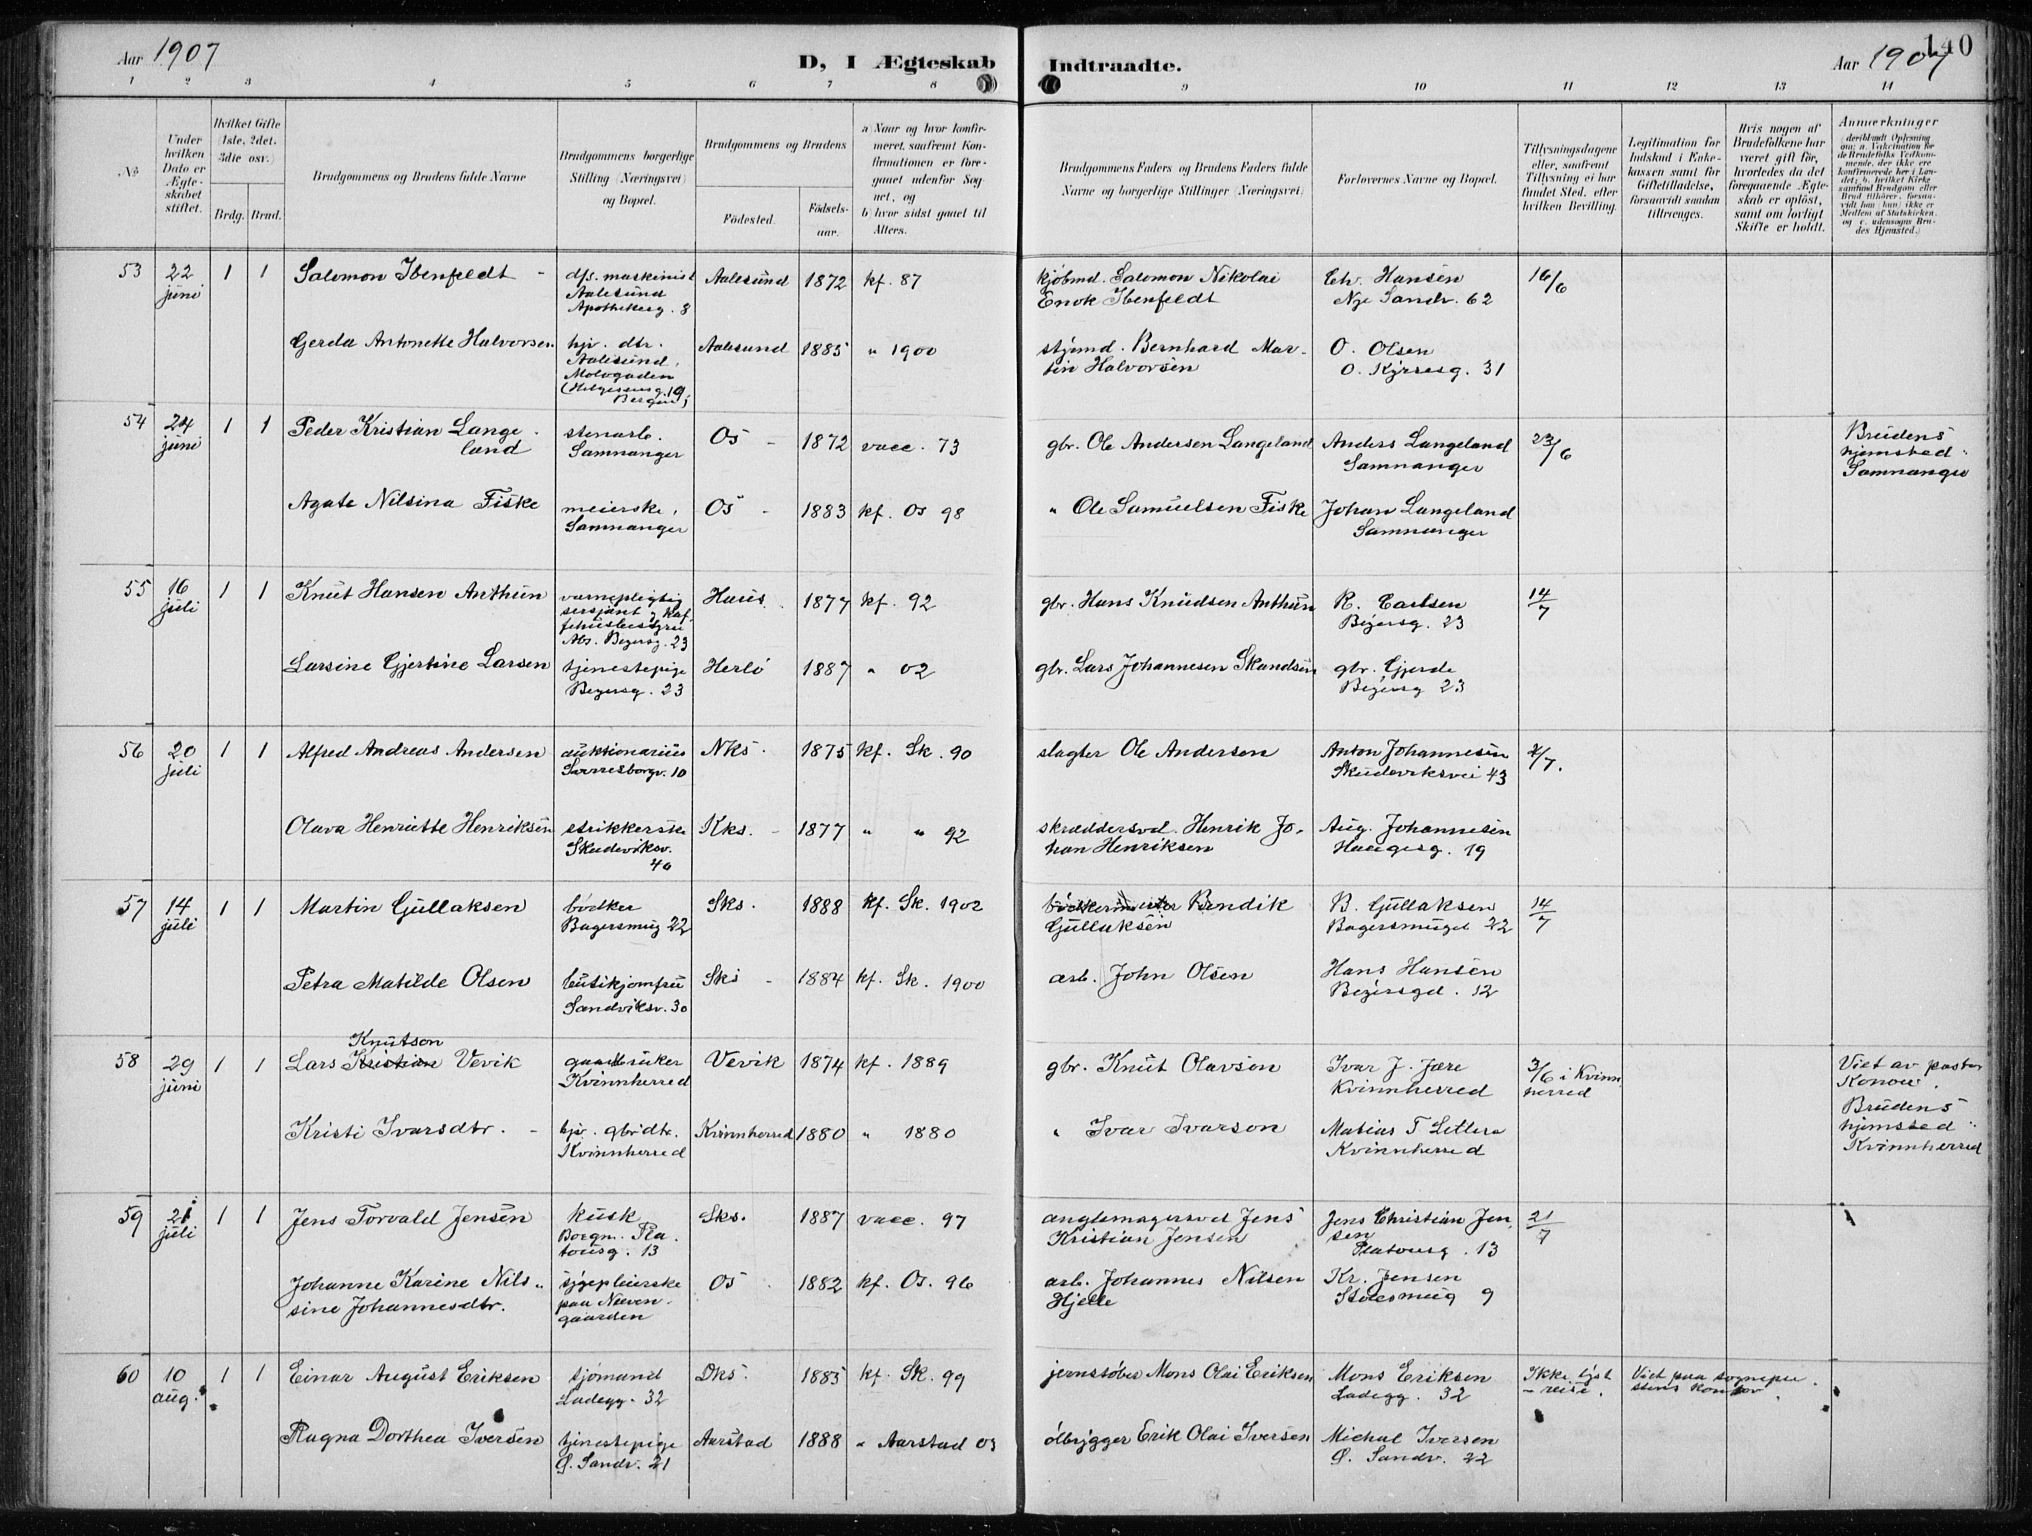 Aar 1907
D, I Ægteskab
Indtraadte.
Aar 1907
140
1 2 3 4 5 6 7 8
9 10 11 12 13 14
No
Under hvilken Dato er Ægteskabet stiftet.
Hvilket Gifte (1ste, 2det. 3die osv.)
Brdg. Brud.
Brudgommens og Brudens fulde Navne
Brudgommens borgerlige Stilling (Næringsvei) og Bopæl.
Brudgommens og Brudens
Födested.
Födsels-aar.
a) Naar og hvor konfirmeret, saafremt Konfirmationen er foregaaet udenfor Sognet, og
b) hvor sidst gaaet til Alters.
Brudgommens Faders og Brudens Faders fulde Navne og borgerlige Stillinger (Næringsvei).
Forlovernes Navne og Bopæl.
Tillysningsdagene eller, saafremt Tillysning ei har fundet Sted, efter hvilken Bevilling.
Legitimation for Indskud i Enkekassen samt for Giftetilladelse, forsaavidt saadan tiltrænges.
Hvis nogen af Brudefolkene har været gift för, hvorledes da det foregaaende Ægteskab er oplöst, samt om lovligt Skifte er holdt.
Anmerkninger
53 22 juni 1 1 Salomon Ibenfeldt - d/s. maskinist Aalesund Apothekerg. 8 Aalesund 1872 kf. 87 kjøbmd. Salomon Nikolai Enok Ibenfeldt Chr. Hansen Nye Sandv. 62 16/6
Gerda Antonette Halvorsen hjv. dtr. Aalesund, Mologaden (Helgesensg. 19 Bergen) Aalesund 1885 " 1900 stjømd. Bernhard Martin Halvorsen O. Olsen O. Kjrresg. 31
54 24 juni 1 1 Peder Kristian Langeland stenarb. Samnanger Os - 1872 vacc. 73 gbr. Ole Andersen Langeland Anders Langeland Samnanger 23/6 Brudens hjemsted: Samnanger
Agate Nilsina Fiske meierske, Samnanger Os - 1883 kf. Os 98 " Ole Samuelsen Fiske Johan Langeland Samnanger
55 16 juli 1 1 Knut Hansen Anthun vernepligtig sersjant, kaffehusbestyrer Abs. Beyersg. 23 Haus. 1877 kf. 92 gbr. Hans Knudsen Anthun R. Carlsen Beyersg. 23 14/7
Larsine Gjertine Larsen tjenestepige Beyersg. 23 Herlö 1887 " 02 gbr. Lars Johannesen Skandsen gbr. Gjerde Beyersg 23
56 20 juli 1 1 Alfred Andreas Andersen auktionarius Sverresborgv. 10 Nks. 1875 kf. Sk. 90 slagter Ole Andersen Anton Johannesen Skudeviksvei 43 /7.
Olava Henriette Henriksen strikkerske Skudeviksv. 40 Kks. - 1877 " " 92 skræddersvd. Henrik Johan Henriksen Aug. Johannesen Haugesg. 19
57 14 juli 1 1 Martin Gullaksen bödker Bagersmug 22 Sks. 1888 kf. Sk. 1902 bödkermester Bendik Gullaksen B. Gullaksen Bagersmuget 22 14/7
Petra Matilde Olsen butikjomfru Sandviksv. 30 Sks - 1884 kf. Sk. 1900 arb. John Olsen Hans Hansen Beyersgd. 12
Knutson
58 29 juni 1 1 Lars Kristian Vevik gaardbruker Kvinnherred Vevik 1874 kf. 1889 gbr. Knut Olavson Ivar J. Jære Kvinnherred 3/6 i Kvinnherred Viet av pastor Konow. Brudens hjemsted: Kvinnherred
Kristi Ivarsdtr. - hjv. gbr.dtr. Kvinnherred Kvinnherred 1880 " 1880 " Ivar Ivarson Matias T Kvinnherred
59 21 juli 1 1 Jens Torvald Jensen kusk Borgm. Platousg. 13 Sks. 1887 vacc. 97 anglemagersvd Jens Kristian Jensen Jens Christian Jensen Platousg. 13 21/7
Johanne Karine Nilssine Johannesdtr. sygepleierske paa Neevengaarden Os 1882 kf. Os. 96 arb. Johannes Nilsen Hjelle Kr. Jensen Stølesmug 9
60 10 aug. 1 1 Einar August Eriksen sjömand Ladegg. 32 Dks. 1885 kf. Sk. 99 jernstøber Mons Olai Eriksen Mons Eriksen Ladegg. 32 Ikke lyst - reise. Viet paa sogneprestens kontor.
Ragna Dorthea Iversen tjenestepige Ø. Sandv. 21 Aarstad 1888 " Aarstad 03 ölbrygger Erik Olai Iversen Michal Iversen Ø. Sandv. 22